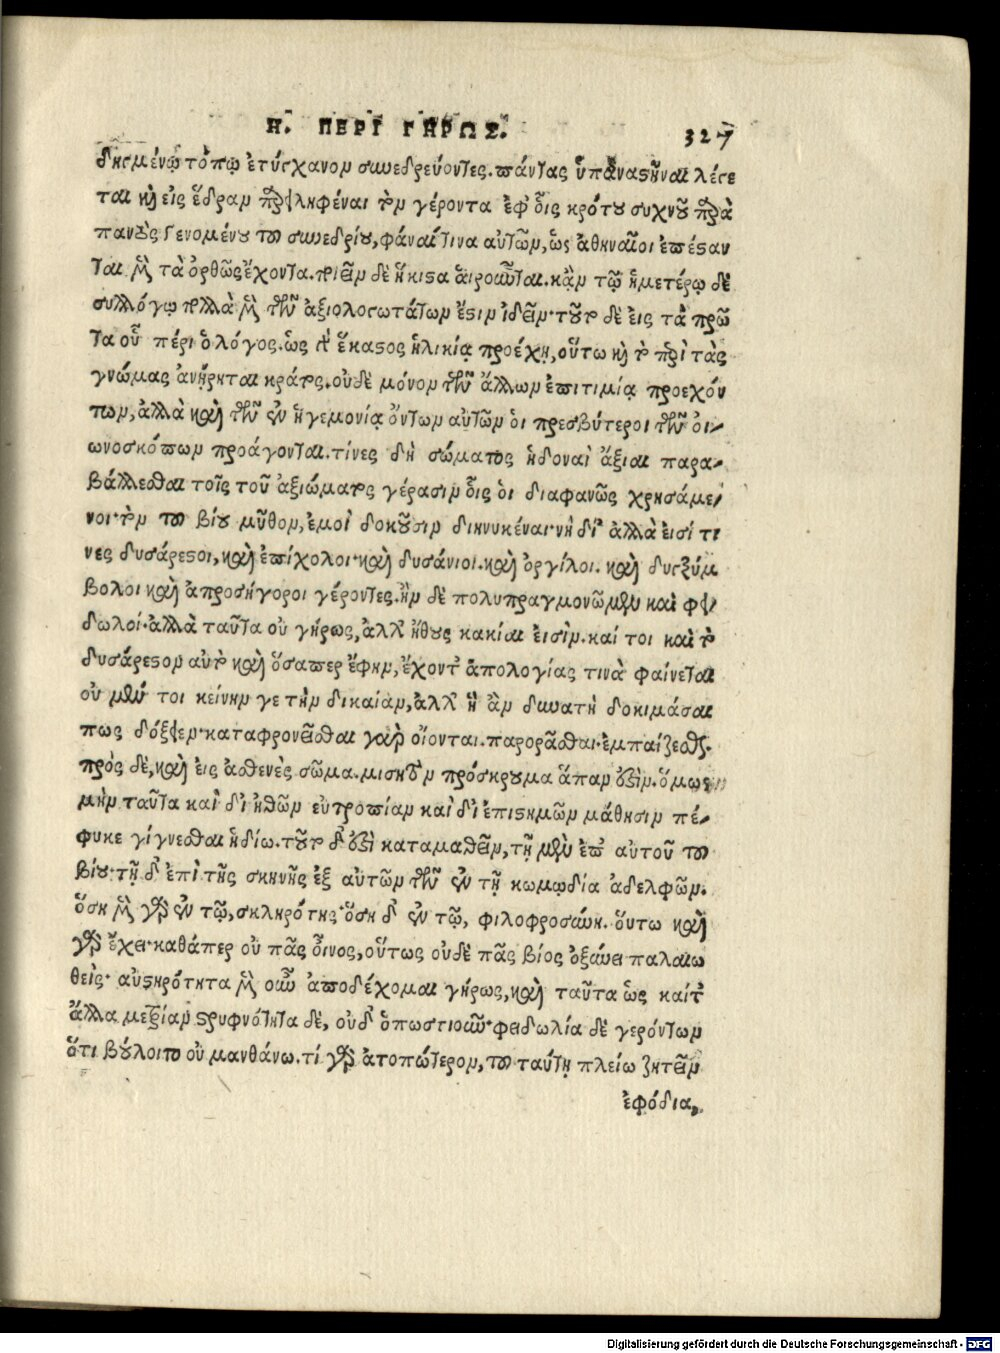 Η. ΠΕΡΙ ΓΗΡΩΣ. 327
δησμένῳ τόπῳ ἐτύγχανον συνεδρεύοντες. πάντας ὑπαναστῆναι λέγε
ται καὶ εἰς ἕδραν προσειληφέναι τὸν γέροντα ἐφ' οἷς κρότου συχνοῦ παρὰ
παντὸς γενομένου τοῦ συνεδρίου, φάναί τινα αὐτῶν, ὡς ἀθηναῖοι ἐπέσταν
ται μὲν τὰ ὀρθῶς ἔχοντα. ποιεῖν δὲ ἥκιστα αἱροῦνται. κἀν τῷ ἡμετέρῳ δὲ
συλλόγῳ πολλὰ μὲν τῶν ἀξιολογωτάτων ἔστιν ἰδεῖν· τοῦτο δὲ εἰς τὰ πρῶ
τα οὗ πέρι ὁ λόγος. ὡς γὰρ ἕκαστος ἡλικίᾳ προέχῃ, οὕτω καὶ τὸ περὶ τὰς
γνώμας ἀνῄρηται κράτος. οὐδὲ μόνον τῶν ἄλλων ἐπιτιμίᾳ προεχόν
των, ἀλλὰ καὶ τῶν ἐν ἡγεμονίᾳ ὄντων αὐτῶν οἱ πρεσβύτεροι τῶν οἰ
ωνοσκόπων προάγονται. τίνες δὴ σώματος ἡδοναὶ ἄξιαι παρα
βάλλεσθαι τοῖς τοῦ ἀξιώματος γέρασιν οἷς οἱ διαφανῶς χρησάμε
νοι· τὸν τοῦ βίου μῦθον, ἐμοὶ δοκοῦσιν διηνυκέναι· νὴ δί' ἀλλὰ εἰσί τι
νες δυσάρεστοι, καὶ ἐπίχολοι· καὶ δυσάνιοι. καὶ ὀργίλοι. καὶ δυσξύμ
βολοι καὶ ἀπροσήγοροι γέροντες. ἢν δὲ πολυπραγμονῶμεν καὶ φει
δωλοί· ἀλλὰ ταῦτα οὐ γήρως, ἀλλ' ἤθους κακίαι εἰσὶν. καί τοι καὶ τὸ
δυσάρεστον αὐτὸ καὶ ὅσαπερ ἔφην, ἔχοντ' ἀπολογίας τινὰ φαίνεται
οὐ μέν τοι κείνην γε τὴν δικαίαν, ἀλλ' ἣ ἂν δυνατὴ δοκιμάσαι
πως δόξειεν· καταφρονεῖσθαι γὰρ οἴονται. παρορᾶσθαι· ἐμπαίζεσθαι.
πρὸς δὲ, καὶ εἰς ἀσθενὲς σῶμα. μισητὸν πρόσκρουμα ἅπαν ἐστὶν. ὅμως
μὴν ταῦτα καὶ δι' ἠθῶν εὐτροπίαν καὶ δι' ἐπιστημῶν μάθησιν πέ
φυκε γίγνεσθαι ἡδίω. τοῦτο δ' ἐστὶ καταμαθεῖν, τῇ μὲν ἐπ' αὐτοῦ τοῦ
βίου· τῇ δ' ἐπὶ τῆς σκηνῆς ἐξ αὐτῶν τῶν ἐν τῇ κωμῳδία ἀδελφῶν.
ὅση μὲν γὰρ ἐν τῷ, σκληρότης· ὅση δ' ἐν τῷ, φιλοφροσύνη. οὕτω καὶ
γὰρ ἔχει· καθάπερ οὐ πᾶς οἶνος, οὕτως οὐδὲ πᾶς βίος ὀξύνει παλαιω
θεὶς· αὐστηρότητα μὲν οὖν ἀποδέχομαι γήρως, καὶ ταῦτα ὡς καί τ'
ἄλλα μετρίαν στρυφνότητα δὲ, οὐδ' ὁπωστιοῦν· φειδωλία δὲ γερόντων
ὅτι βούλοιτο οὐ μανθάνω. τί γὰρ ἀτοπώτερον, τοῦ ταύτῃ πλείω ζητεῖν
ἐφόδια,
Digitalisierung gefördert durch die Deutsche Forschungsgemeinschaft - DFG